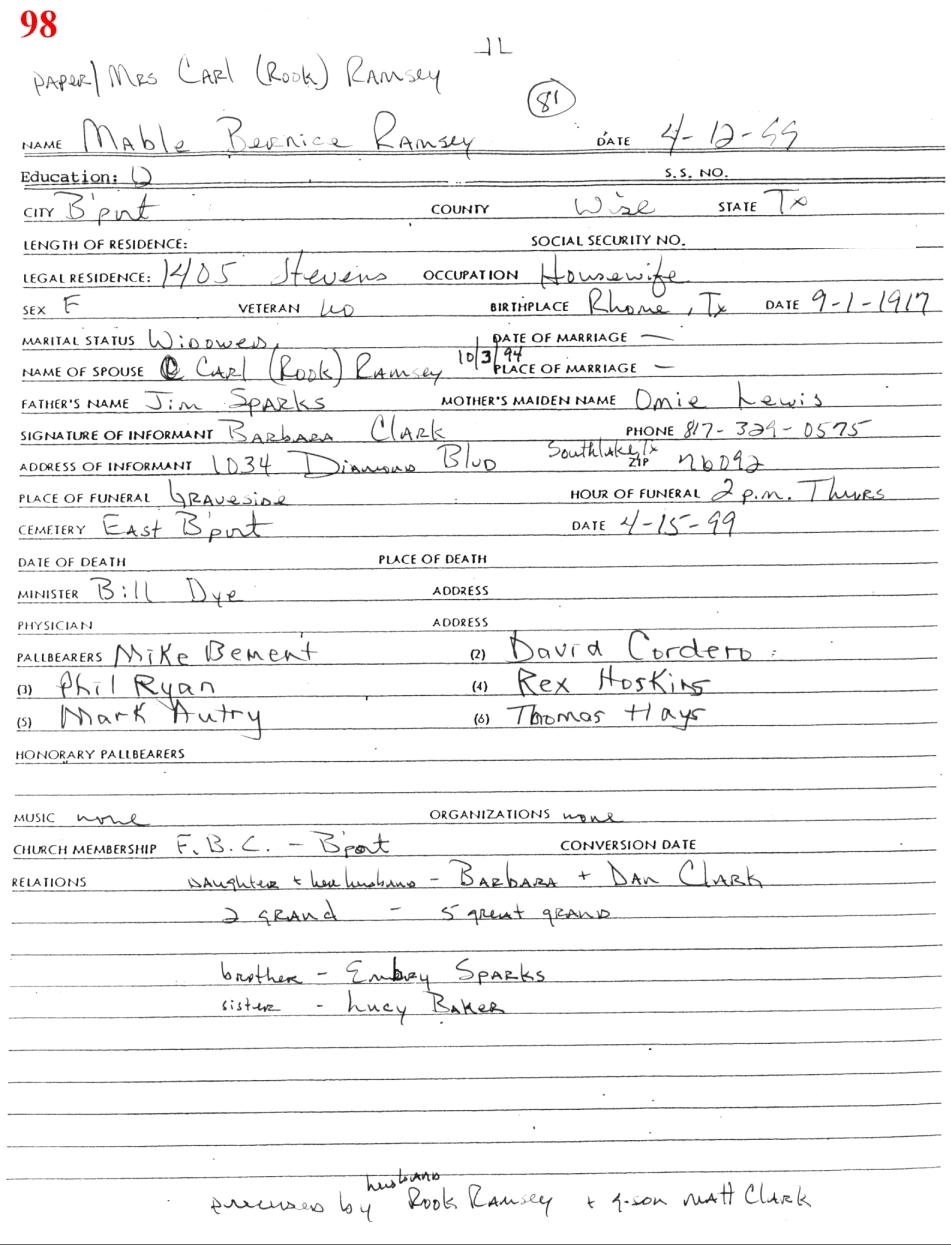 98
JL
PAPER/ MRS CARL (ROOK) RAMSEY
81
NAME Mable Bernice Ramsey DATE 4-12-99
Education: S.S. NO.
CITY B'port COUNTY Wise STATE Tx
LENGTH OF RESIDENCE: SOCIAL SECURITY NO.
LEGAL RESIDENCE: 1405 Stevens OCCUPATION Housewife
SEX F VETERAN no BIRTHPLACE Rhome, Tx DATE 9-1-1917
MARITAL STATUS Widowed, DATE OF MARRIAGE —
NAME OF SPOUSE CARL (ROOK) RAMSEY 10/3/94 PLACE OF MARRIAGE —
FATHER'S NAME Jim SPARKS MOTHER'S MAIDEN NAME Omie Lewis
SIGNATURE OF INFORMANT BARBARA CLARK PHONE 817-329-0575
ADDRESS OF INFORMANT 1034 Diamond BLVD Southlake, Tx ZIP 76092
PLACE OF FUNERAL GRAVESIDE HOUR OF FUNERAL 2 p.m. THURS
CEMETERY EAST B'port DATE 4-15-99
DATE OF DEATH PLACE OF DEATH
MINISTER Bill Dye ADDRESS
PHYSICIAN ADDRESS
PALLBEARERS Mike Bement (2) David Cordero
(3) Phil Ryan (4) Rex Hoskins
(5) Mark Autry (6) Thomas Hays
HONORARY PALLBEARERS
MUSIC none ORGANIZATIONS none
CHURCH MEMBERSHIP F.B.C. - B'port CONVERSION DATE
RELATIONS DAUGHTER + her husband - BARBARA + DAN CLARK
2 GRAND - 5 great GRAND
brother - Embry SPARKS
sister - Lucy BAKER
husband
preceded by ROOK RAMSEY + g-son MATT CLARK